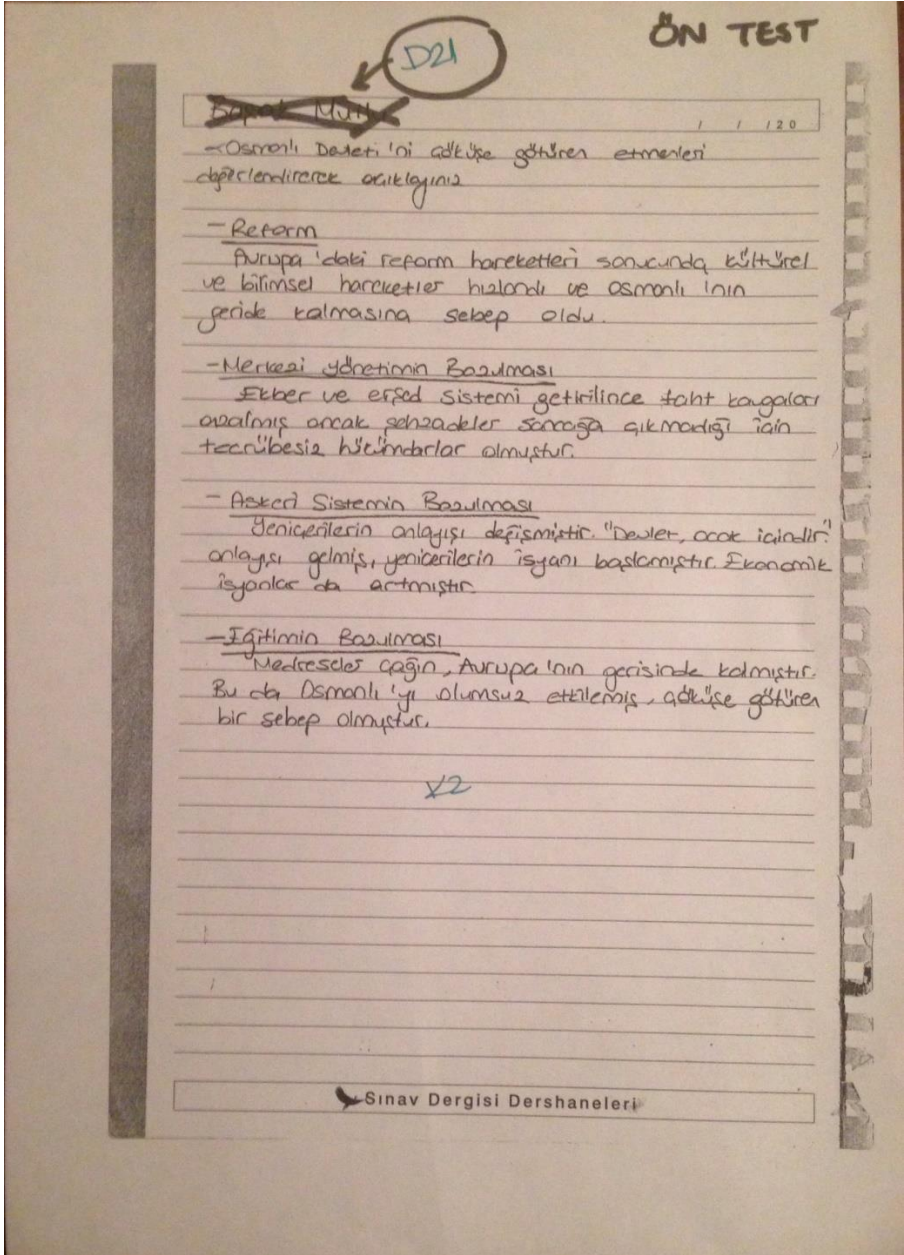 ÖN TEST
D21
/ / 120
-Osmanlı Devleti'ni çöküşe götüren etmenleri
değerlendirerek açıklayınız
- Reform
Avrupa'daki reform hareketleri sonucunda kültürel
ve bilimsel hareketler hızlandı ve osmanlı'nın
geride kalmasına sebep oldu.
-Merkezi yönetimin Bozulması
Ekber ve erşed sistemi getirilince taht kavgaları
azalmış ancak şehzadeler sancağa çıkmadığı için
tecrübesiz hükümdarlar olmuştur.
- Askeri Sistemin Bozulması
Yeniçerilerin anlayışı değişmiştir. "Devlet, ocak içindir."
anlayışı gelmiş, yeniçerilerin isyanı başlamıştır. Ekonomik
isyanlar da artmıştır.
-Eğitimin Bozulması
Medreseler çağın, Avrupa'nın gerisinde kalmıştır.
Bu da Osmanlı'yı olumsuz etkilemiş, çöküşe götüren
bir sebep olmuştur.
Sınav Dergisi Dershaneleri